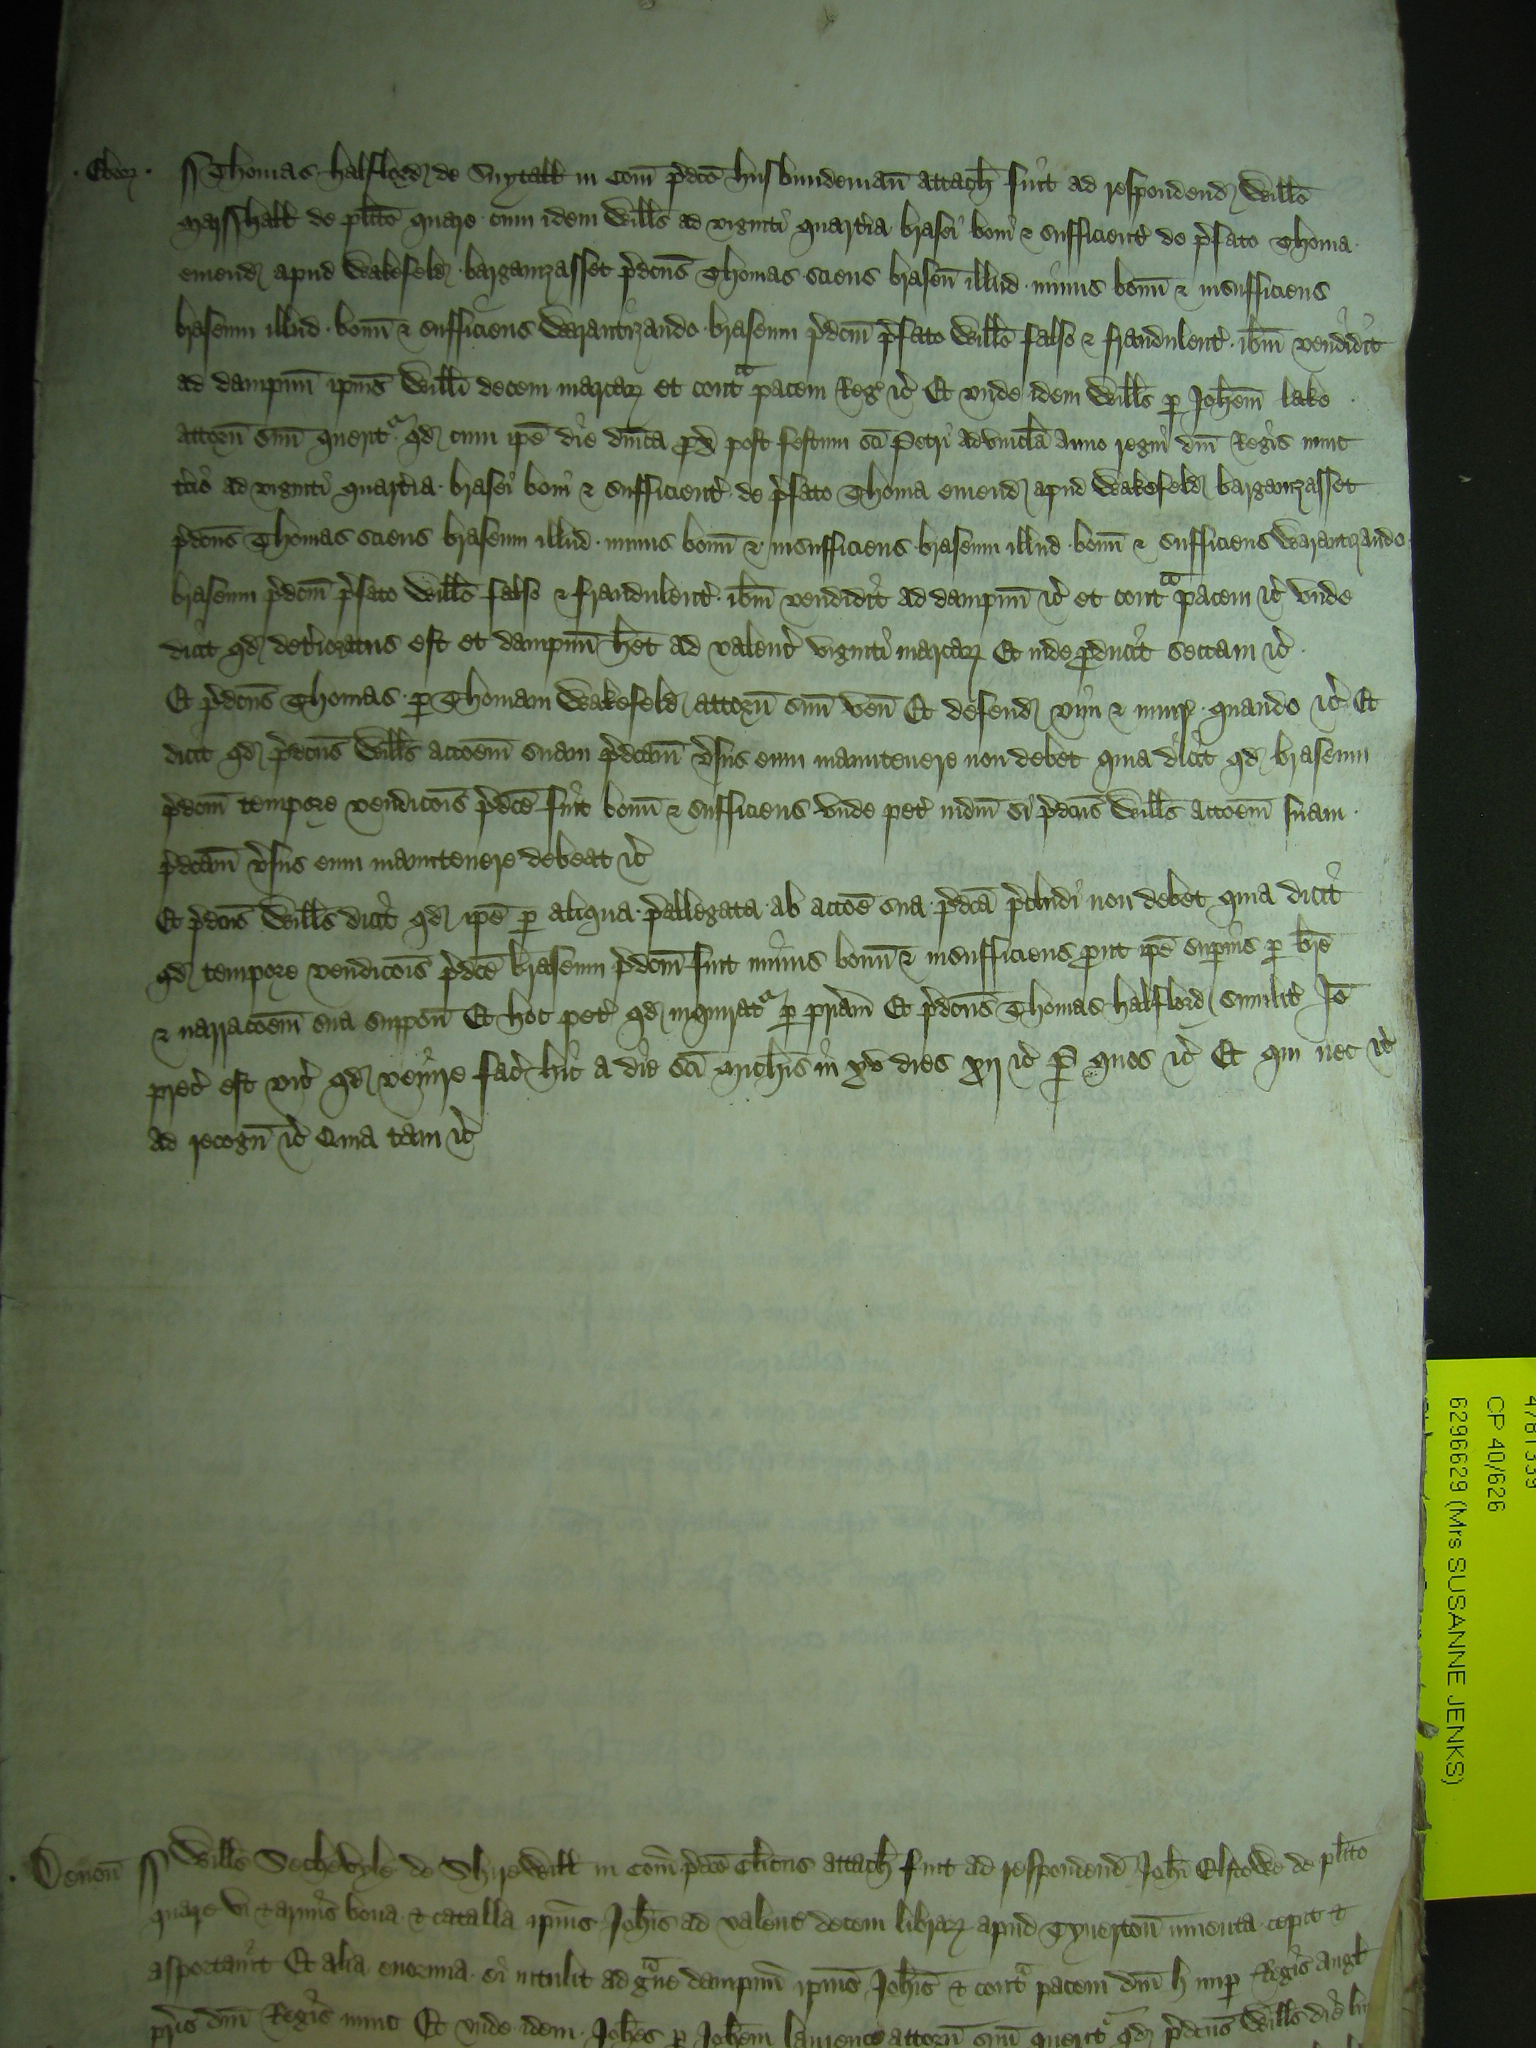 Ebor
Thomas halflord de Snytall in Com p̄dc̄o husbundeman̄ attach fuit ad respondend Willo
Marsshall de pl̄ito quare cum idem Wills ad viginti quarteria brasei boni & sufficient de p̄fato Thoma
emend apud Wakefeld barganizasset p̄dcūs Thomas sciens braseū illud minus bonū & insufficiens
braseum illud bonū & sufficiens Warantizando braseum p̄dcm̄ p̄fato Willo falso & fraudulent ib̄m vendidit
ad dampnū ip̄ius Willi decem marcarz et contra pacem Reḡ &c Et vnde idem Wills p Joh̄em lake
attorn̄ suū querit̄ qd cum ip̄e die dn̄ica px̄ post festum sc̄i Petri advincla Anno regni dn̄i Regis nunc
t̄cio ad viginti quarteria brasei boni & sufficient de p̄fato Thoma emend apud Wakefeld barganizasset
p̄dcūs Thomas sciens braseum illud minus bonū & insufficiens braseum illud bonū & sufficiens Warantizando
braseum p̄dcm̄ p̄fato Willo falso & fraudulent ib̄m vendidit ad dampnū &c et contra pacem &c vnde
dicit qd det̄ioratus est et dampnū h̄et ad valenc̄ viginti marcarz Et inde producit sectam &c
Et p̄dcūs Thomas p Thomam Wakefeld attorn̄ suū ven̄ Et defend vim & iniur̄ quando &c Et
dicit qd p̄dcūs Wills acc̄oem̄ suam p̄dcam̄ v̄sus eum manutenere non debet quia dicit qd braseum
p̄dcm̄ tempore vendic̄ois p̄dc̄e fuit bonū & sufficiens vnde pet̄ iudm̄ si p̄dcūs Wills acc̄oem̄ suam
p̄dcam̄ v̄sus eum manutenere debeat &c
Et p̄dcūs Wills dicit qd ip̄e p aliqua p̄allegata ab acc̄oe sua p̄dcā p̄cludi non debet quia dicit
qd tempore vendic̄ois p̄dc̄e braseum p̄dcm̄ fuit minus bonū & insufficiens prout ip̄e sup̄ius p br̄e
& narrac̄oem̄ sua suppon̄ Et hoc pet̄ qd inquirat̄ p pr̄iam Et p̄dcūs Thomas halflord similit̄ Jō
prec̄ est vic̄ qd venire fac̄ hic a die sc̄i Mich̄is in xv dies xij &c p quos &c Et qui nec &c
ad recogn̄ &c Quia tam &c
Deuon̄
Wills Sechevyle de Shirewill in Com p̄dc̄o Cl̄icus attach fuit ad respondend Joh̄i Elstowe de pl̄ito
quare vi & armis bona & catalla ip̄ius Joh̄is ad valenc̄ decem librarz apud Tyuerton̄ inuenta cepit &
asportauit Et alia enormia ei intulit ad gue dampnū ip̄ius Joh̄is & contra pacem dn̄i h nup̄ Regis Angl
pr̄is dn̄i Regis nunc Et vnde idem Joh̄es p Joh̄em laurence attorn̄ suū querit̄ qd p̄dcūs Wills die
4781339
CP 40/626
6296629 (Mrs SUSANNE JENKS)